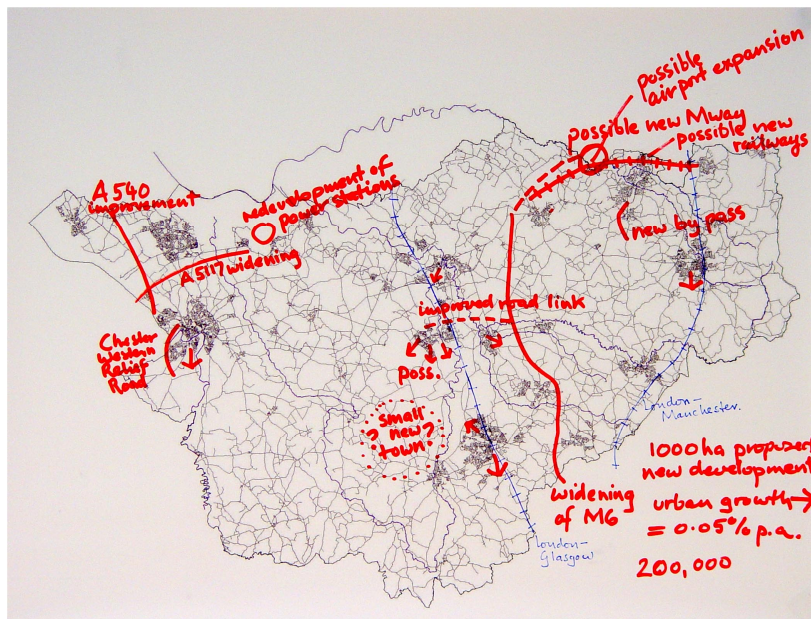 possible
airport expansion
possible new Mway
possible new
railways
A540
improvement
redevelopment of
power stations
A5117 widening
new by pass
improved road link
Chester
Western
Relief
Road
poss.
? small ?
new
town
London-
Manchester.
1000 ha proposed
new development
widening
of M6
urban growth →
= 0.05% p.a.
London-
Glasgow
200,000